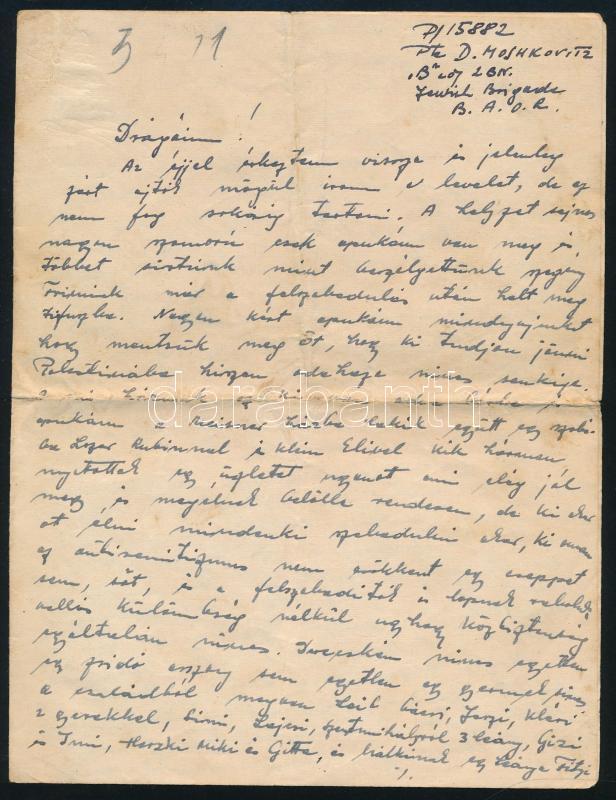 PJ/15882
Pte D. MOSHKOVITZ
"B" coy 2BN.
Jewish Brigade
B. A. O. R.
Drágáim!
Az éjjel érkeztem vissza és jelenleg
zárt ajtók mögül irom a levelet, de ez
nem fog sokáig tartani. A helyzet sajnos
nagyon szomorú csak apukám van meg és
többet sirtunk mint beszélgettünk szegény
már a felszabadulás után halt meg
tifuszba. Nagyon kért apukám mindnyájunkat
hogy mentsük meg őt, hogy ki tudjon jönni
Palestinába hiszen odahaza nincs senkije.
apukám a házba lakik együtt egy szobá-
ba Lezer Rubinnal és Klein Elivel kik hárman
nyitottak egy üzletet ami elég jól
megy és megélnek belőle rendesen, de ki akar
ott élni mindenki szabadulni akar, ki onnan
az antiszemitizmus nem csökkent egy cseppet
sem, sőt, és a felszabadítók is lopnak rabolnak
vallás külömbség nélkül ugy hogy közbiztonság
egyáltalán nincs. nincs egyetlen
egy zsidó asszony sem egyetlen egy gyermek sincs
a családból megvan Leib bácsi, Jenzi, Klári
a gyerekkel, Simi, Lajcsi, szentmihályról 3 leány, Gizi
és Imi, Herski Miki és Gitta, és Malkinak egy leánya Fitzi
darabanth